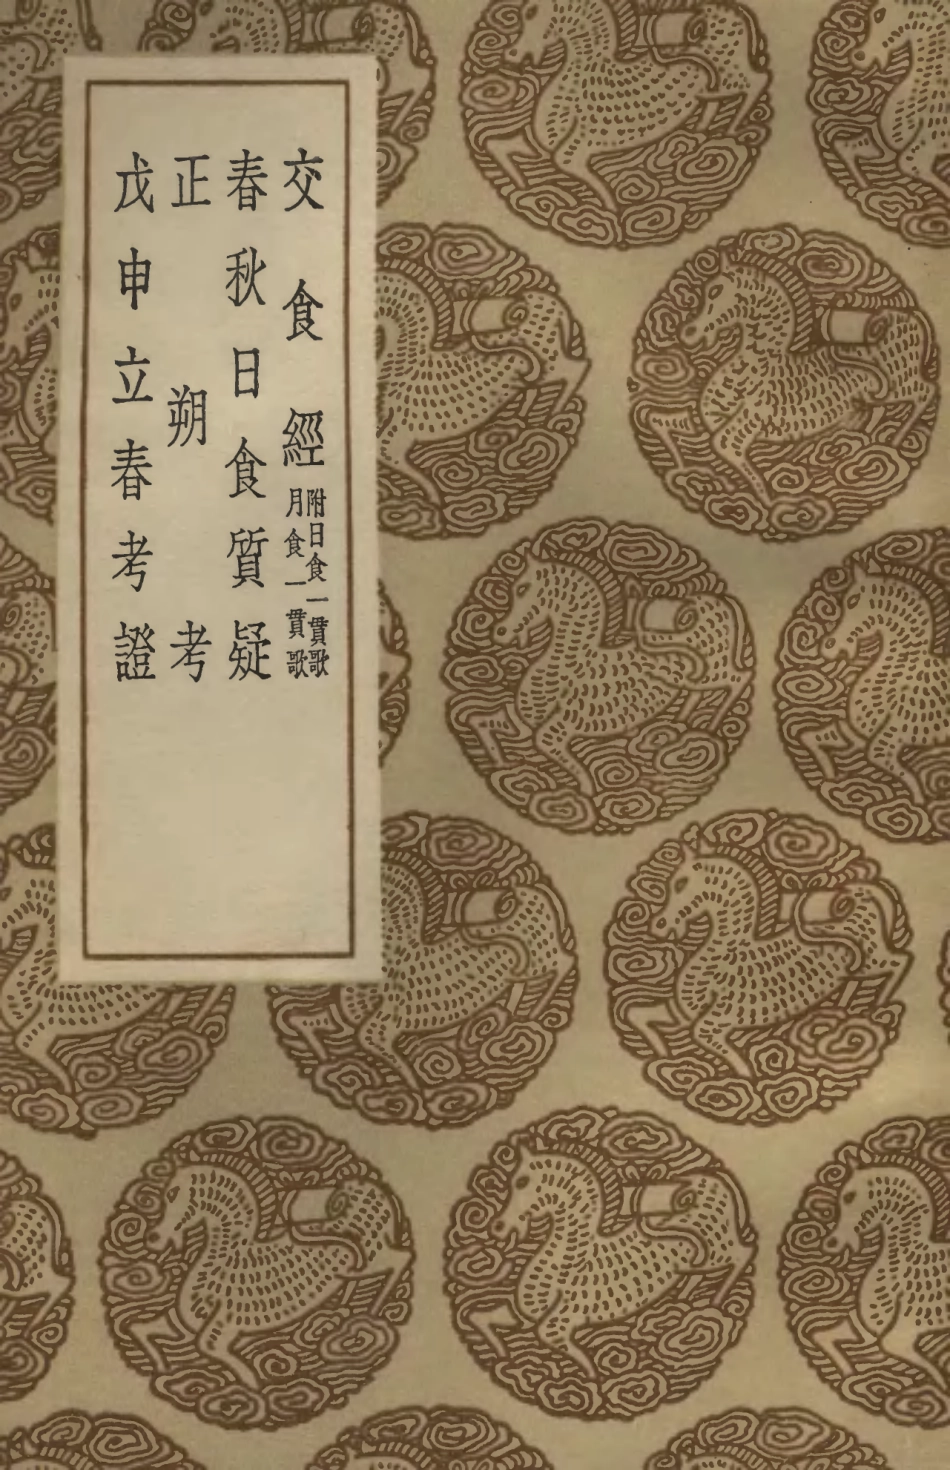 交食經
附日食一貫歌
月食一貫歌
春秋日食質疑
正朔考
戊申立春考證